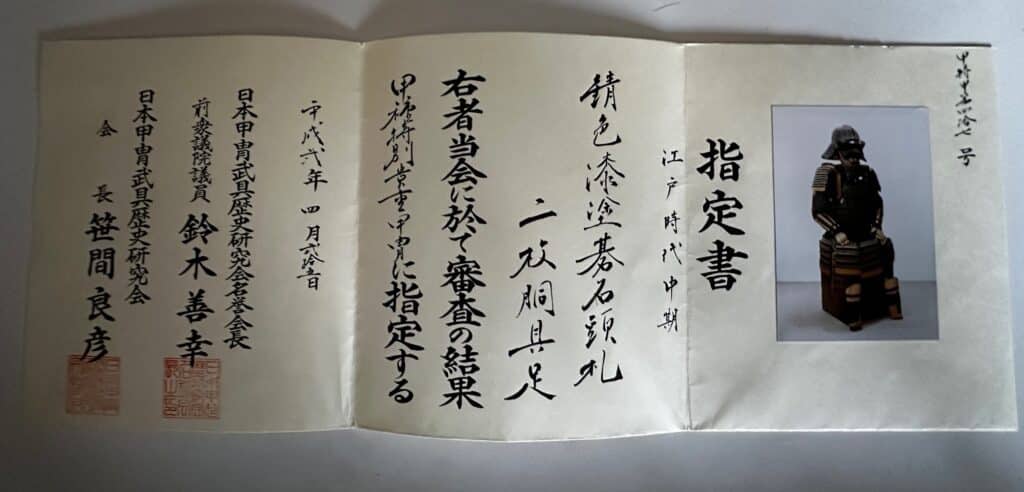 号
指定書
江戸時代中期
錆色漆塗碁石頭札
二枚胴具足
右者当会に於て審査の結果
甲種特別貴重甲冑に指定する
平成六年 四月 日
日本甲冑武具歴史研究会名誉会長
前衆議院議員 鈴木善幸
日本甲冑武具歴史研究会
会長 笹間良彦